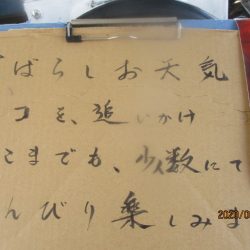 ばらしお天気
コを、追いかけ
こまでも、少人数にて
んびり乗しみま